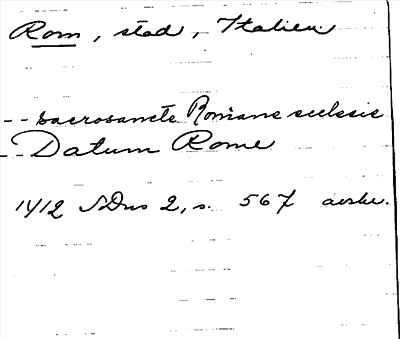 Rom, stad, Italien
-- sacrosancte Romane ecclesie
-- Datum Rome
1412 SDns 2, s. 567 avskr.